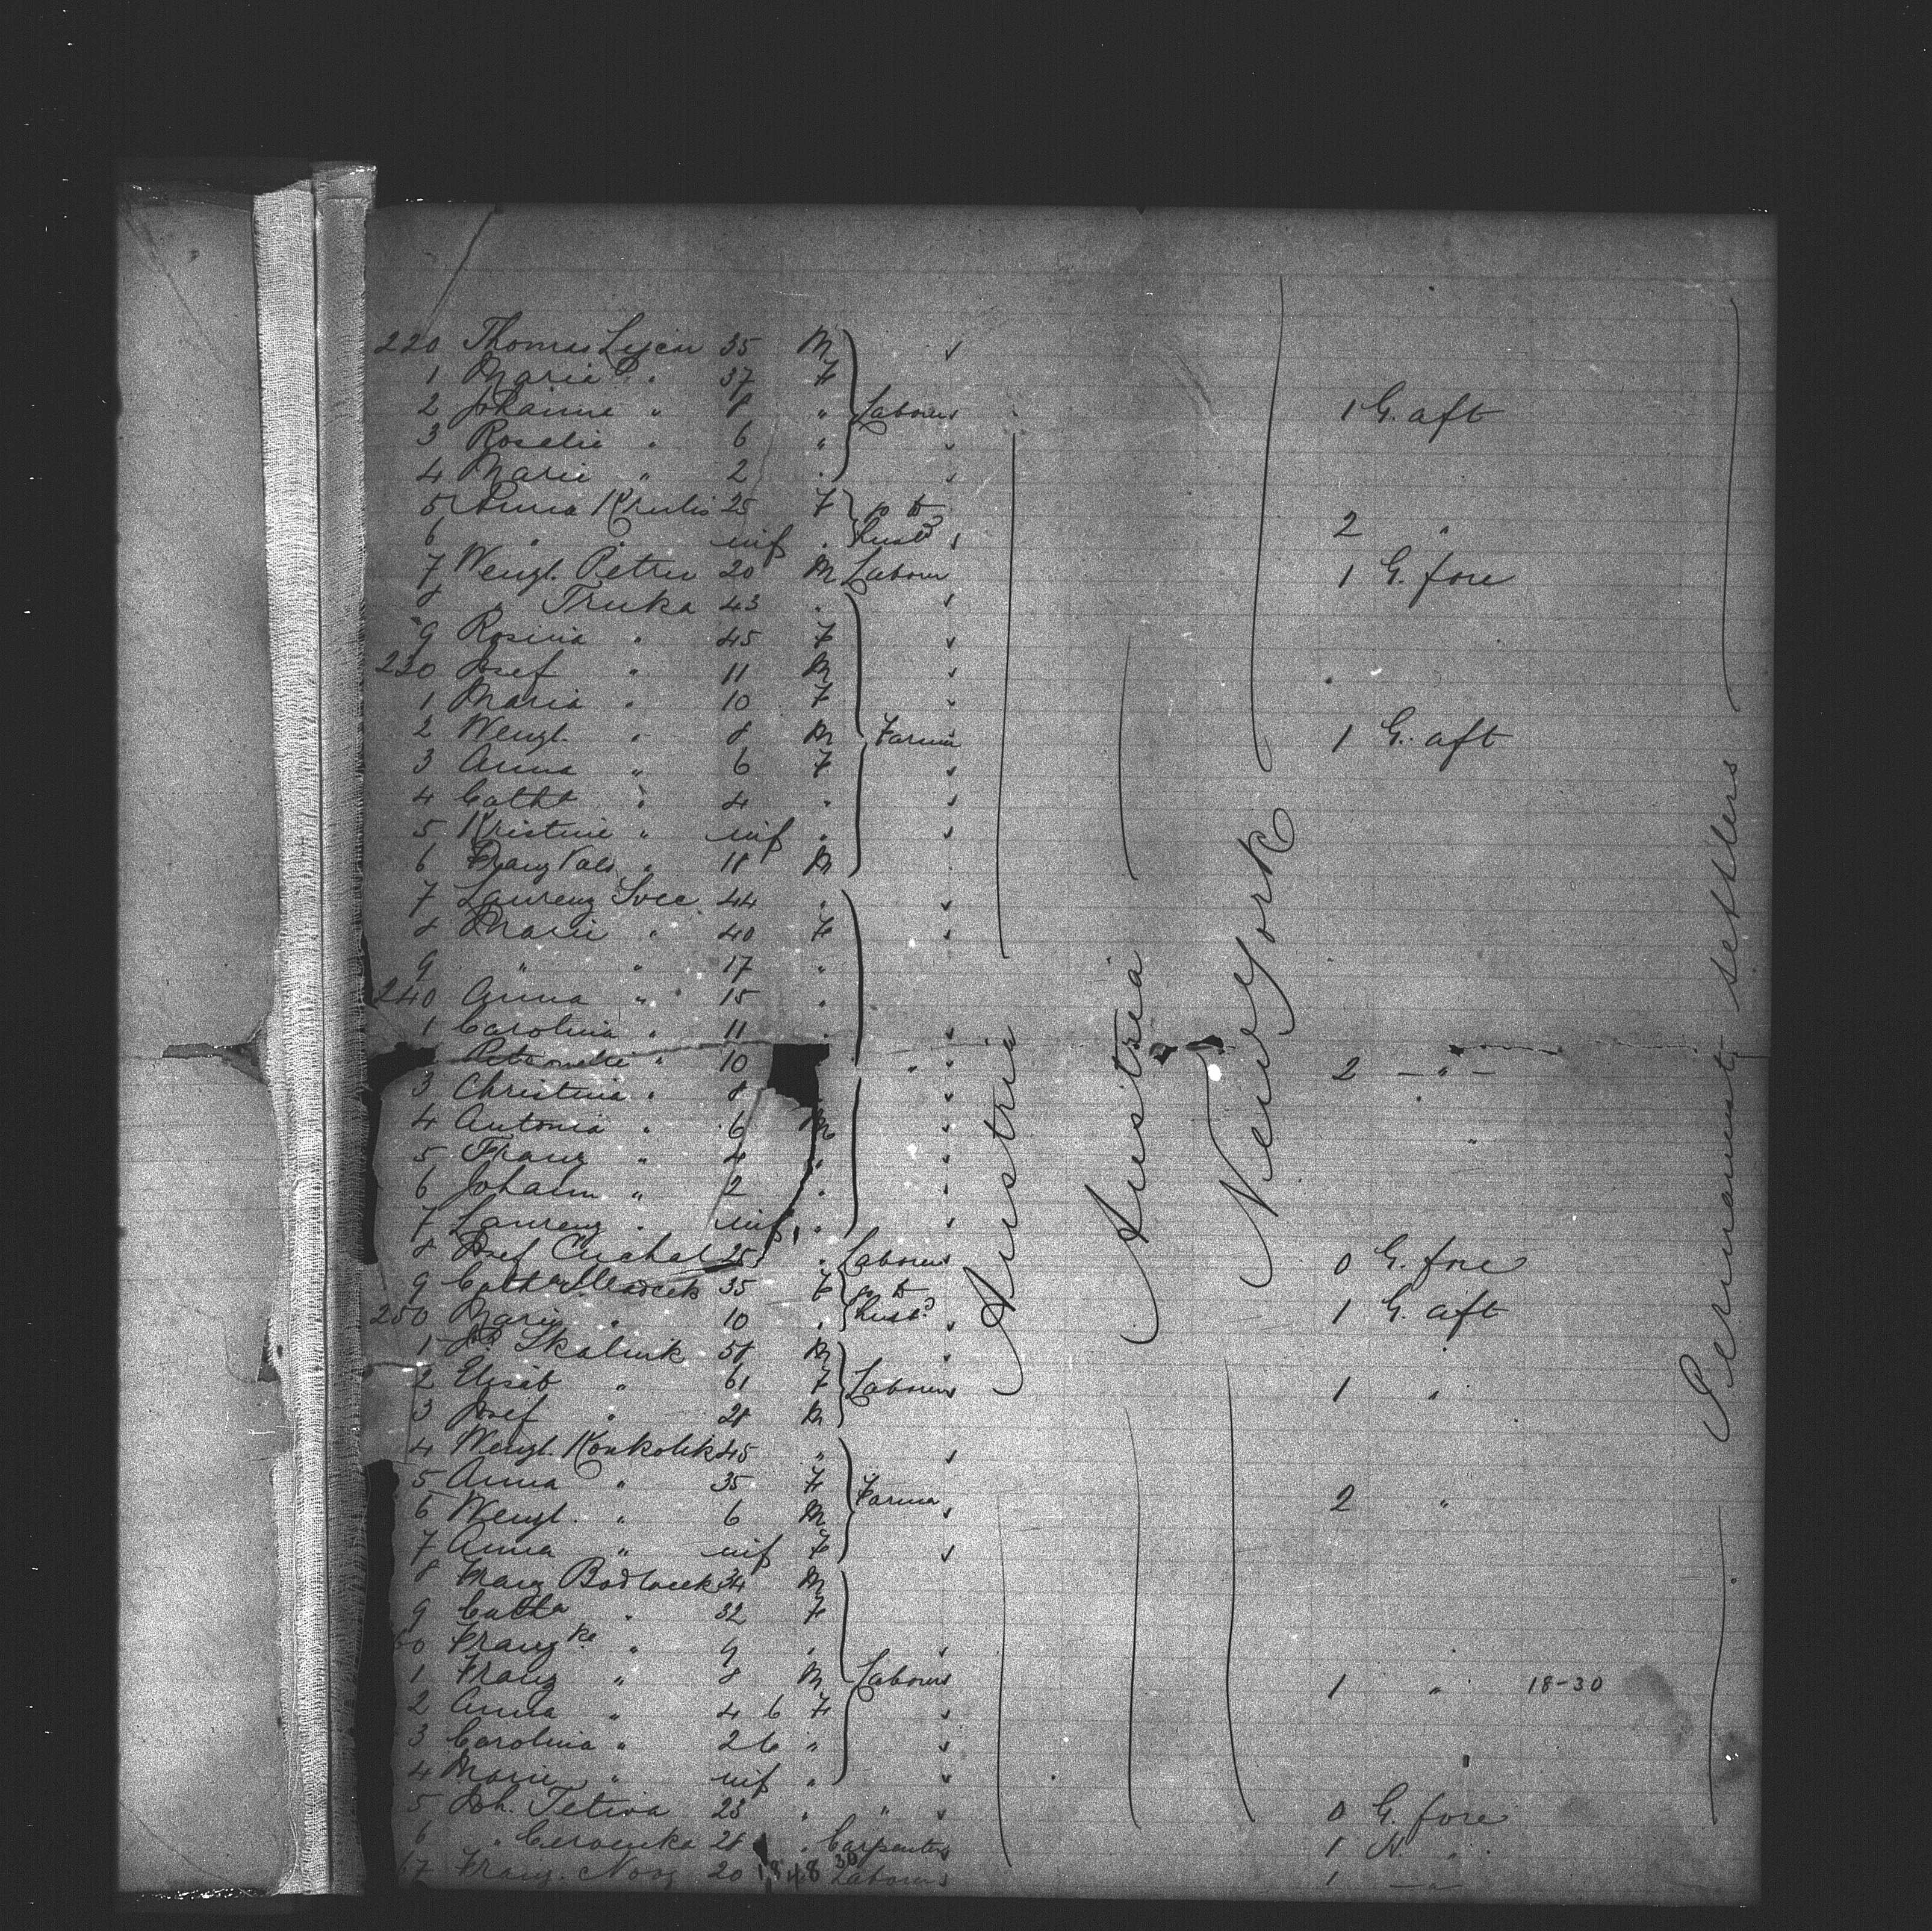 220 Thomas Lycar 35 M
1 Maria " 37 F
2 Johanna " 8 " Laborer 1 G. aft
3 Rosalie " 6 "
4 Marie " 2 "
5 Anna Krulis 25 F go to
6 " " inf " husbd 2 "
7 Wenzl. Petru 20 M Laborer 1 G. fore
8 " Truka 43 "
9 Rosina " 45 F
230 Josef " 11 M
1 Maria " 10 F
2 Wenzl. " 8 M Farmer 1 G. aft
3 Anna " 6 F
4 Cath " 4 "
5 Kristine " inf "
6 Franz " 18 M
7 Laurenz Svec 44 "
8 Marie " 40 F
9 " " 17 "
240 Anna " 15 "
1 Carolina " 11 "
Petronelle " 10 2 — " —
3 Christina " 8
4 Antonia " 6 M
5 Franz " 4 "
6 Johann " 2 "
7 Laurenz " inf "
8 Josef Cuchal 25 " Laborer 0 G. fore
9 Cath 35 F go to
250 Marie " 10 " husbd 1 G. aft
1 Skalnik 58 M
2 Elisab " 61 F Laborer 1 "
3 Josef " 28 M
4 Wenzl. Konkolik 45 "
5 Anna " 35 F Farmer 2 "
6 Wenzl. " 6 M
7 Anna " inf F
8 Franz Bodlacek 34 M
9 Catha " 32 F
60 Franzka " 9 "
1 Franz " 8 M Laborer 1 " 18-30
2 Anna " 4 6 F
3 Carolina " 2 6 "
4 Marie " inf "
5 Joh. Tetiva 23 " " 0 G. fore
6 " Cervenka 28 " Carpenter 1 N. "
67 Franz. 20 Laborer 1 — " —
Austria
Austria
New York
Permanent settlers